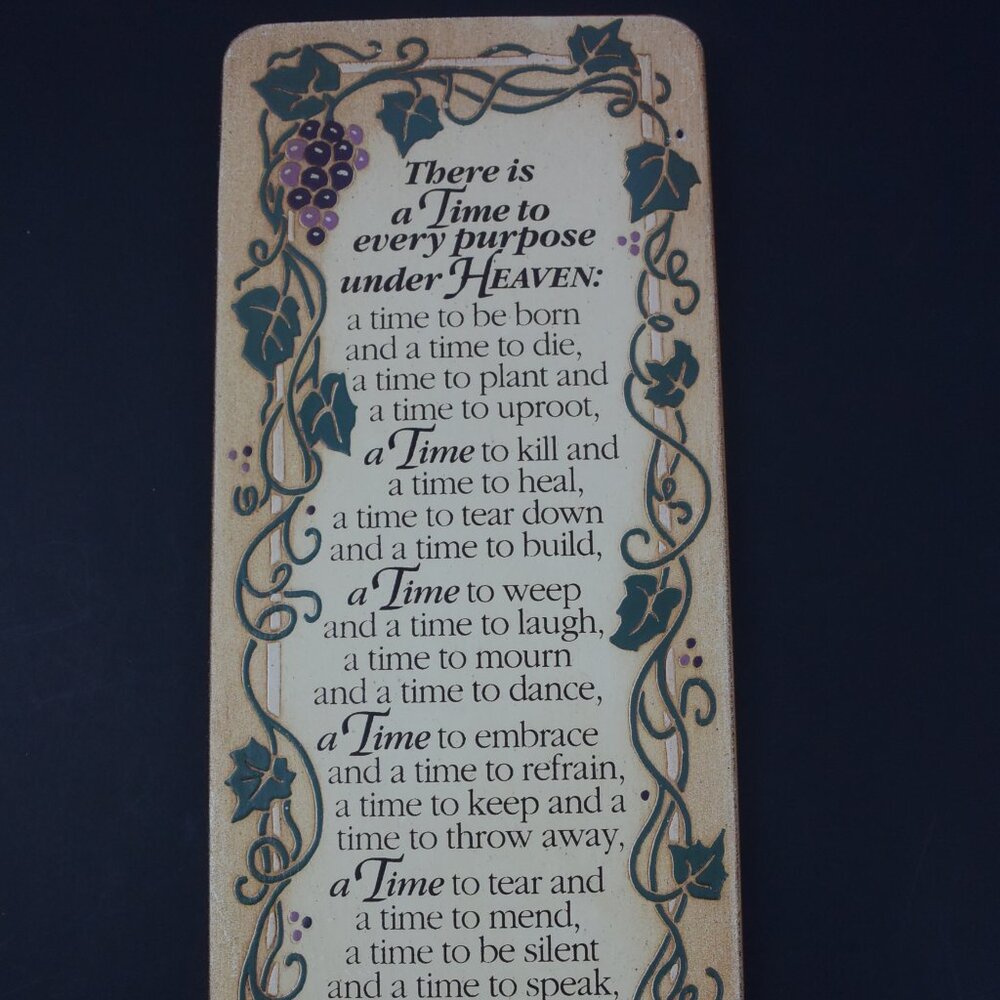 There is
a Time to
every purpose
under HEAVEN:
a time to be born
and a time to die,
a time to plant and
a time to uproot,
a Time to kill and
a time to heal,
a time to tear down
and a time to build,
a Time to weep
and a time to laugh,
a time to mourn
and a time to dance,
a Time to embrace
and a time to refrain,
a time to keep and a
time to throw away,
a Time to tear and
a time to mend,
a time to be silent
and a time to speak,